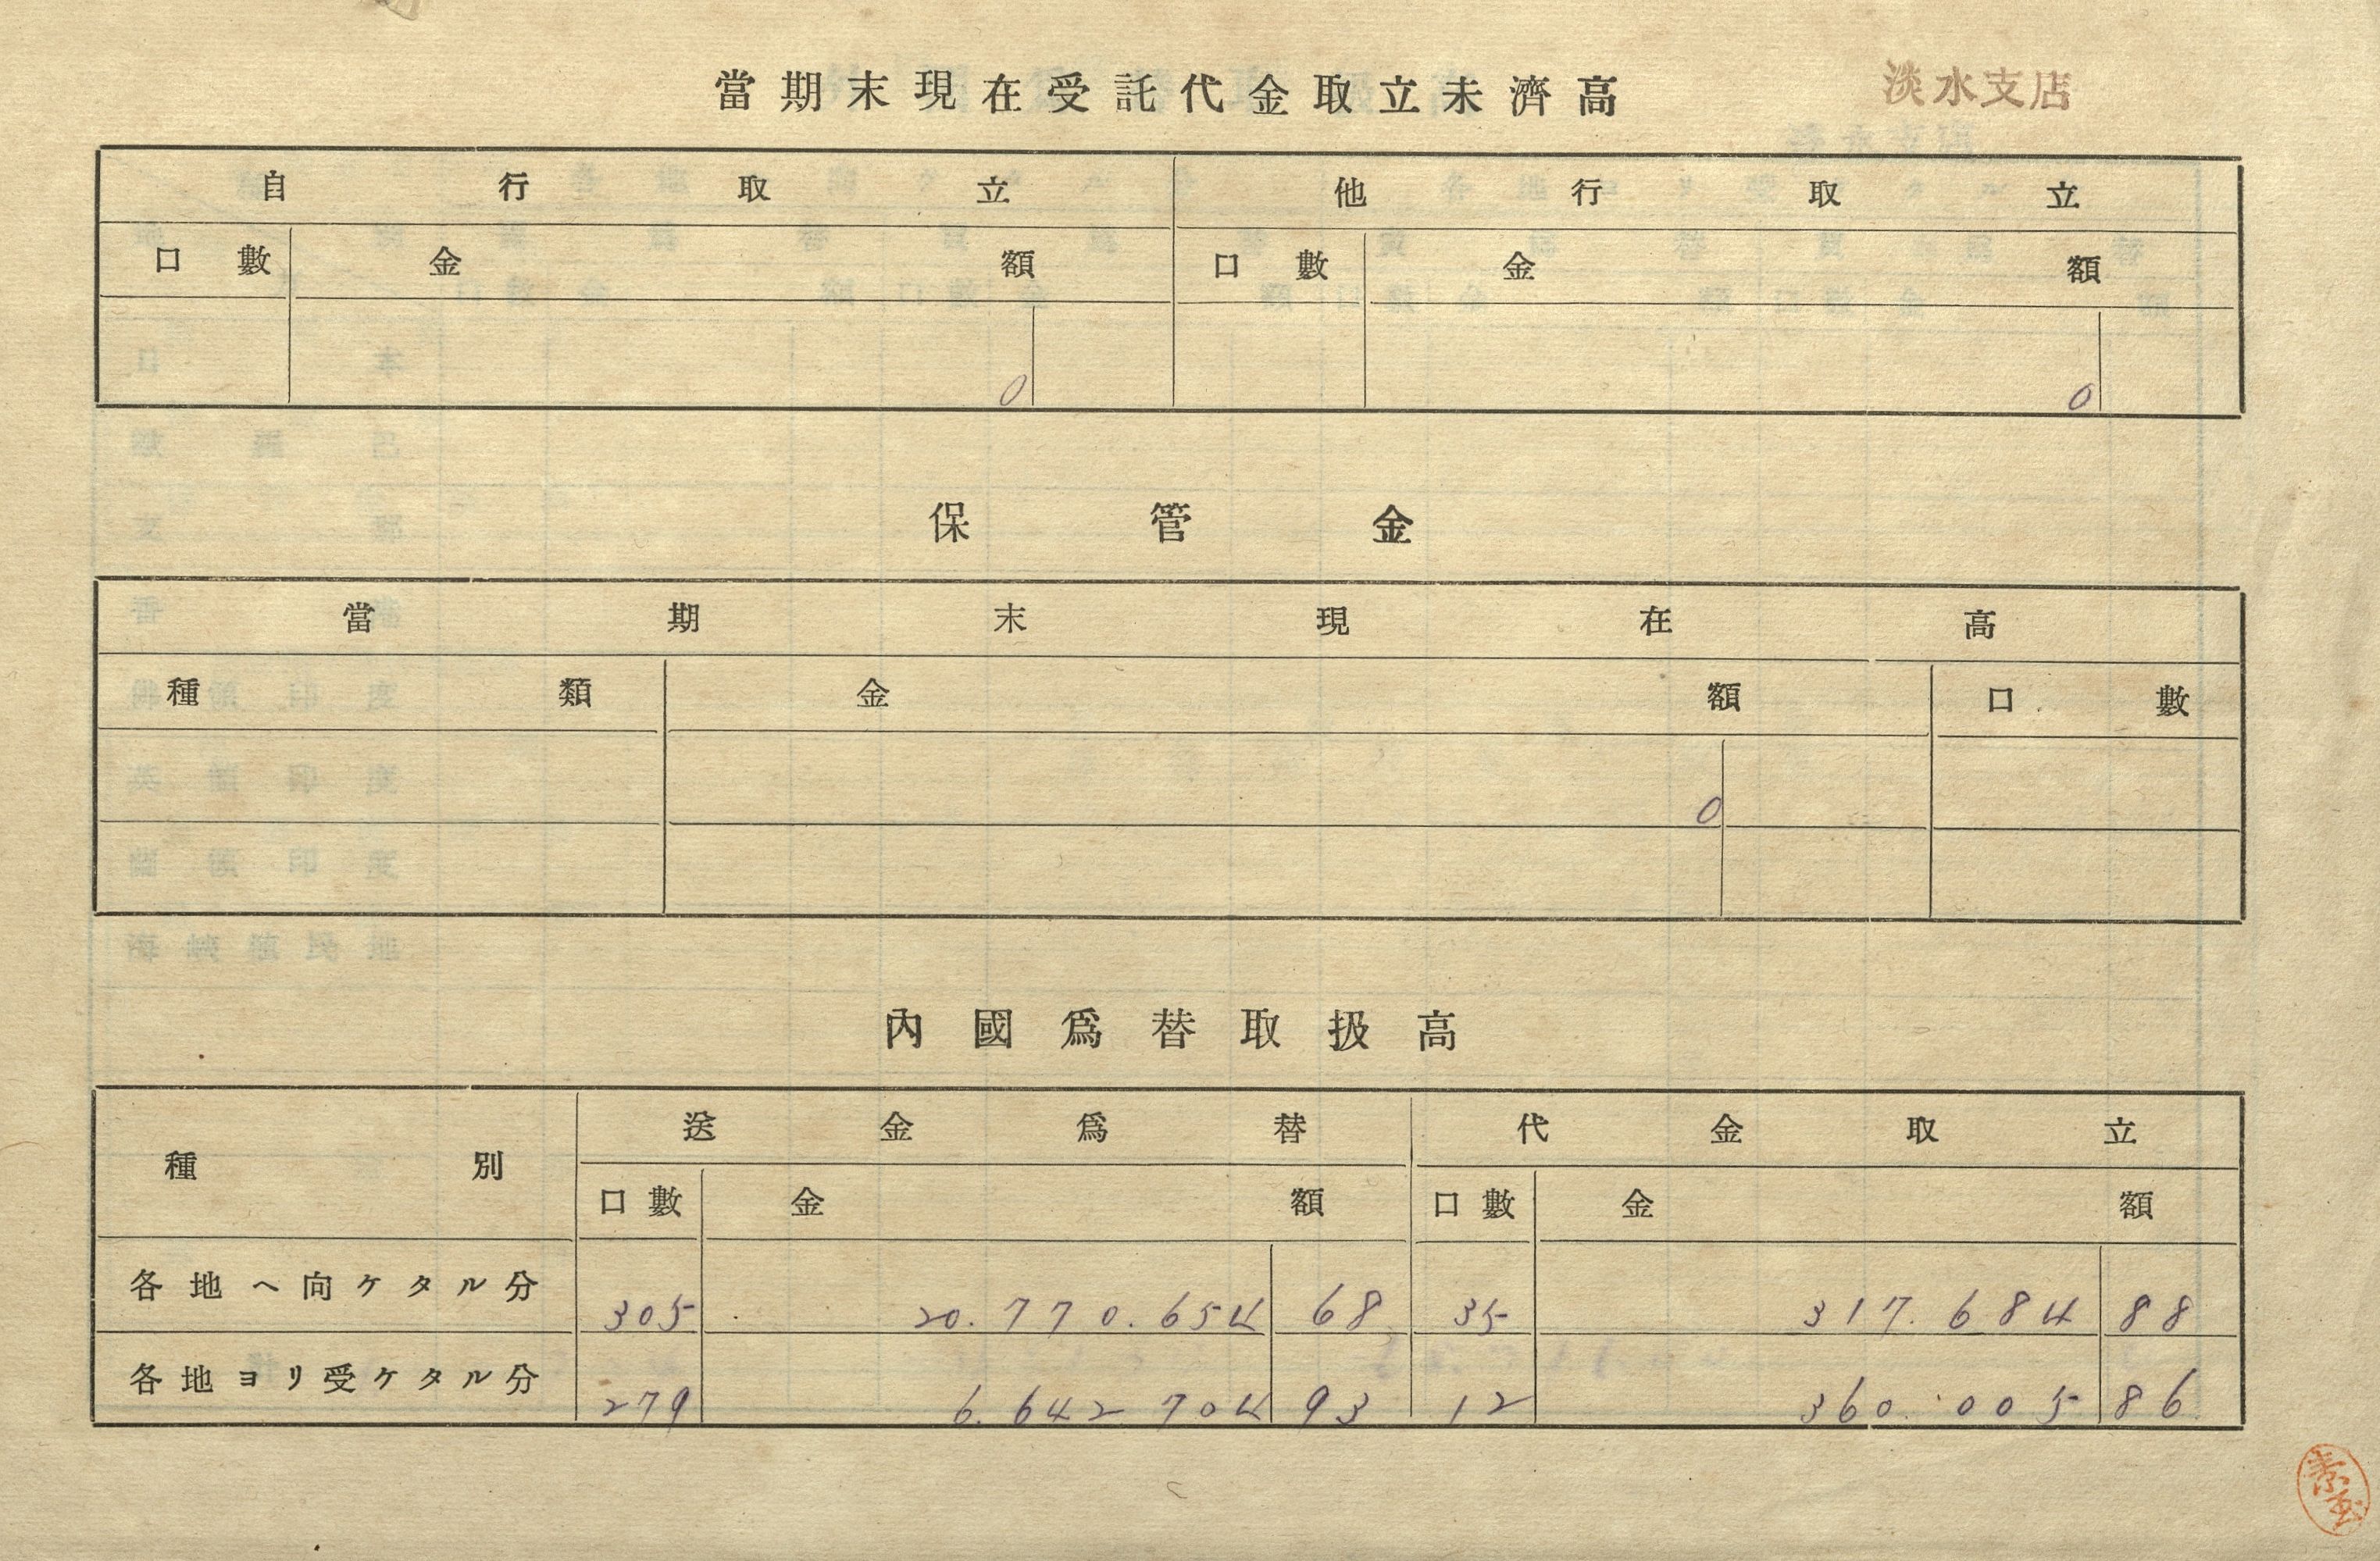 當期末現在受託代金取立未濟高
淡水支店
自行取立 他行取立
口數 金額 口數 金額
0 0
保管金
當期末現在高
種類 金額 口數
0
內國爲替取扱高
種別 送金爲替 代金取立
口數 金額 口數 金額
各地ヘ向ケタル分 305 20.770.654 68 35 317.684 88
各地ヨリ受ケタル分 279 6.642 704 93 12 360.005 86